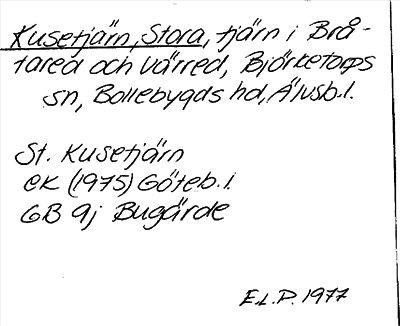 Kusetjärn, Stora, tjärn i Brå-
tared och Värred, Björketorps
sn, Bollebygds hd, Älvsb.l.
St. Kusetjärn
ek (1975) Göteb. i.
GB 9j Bugärde
E.L.P. 1977